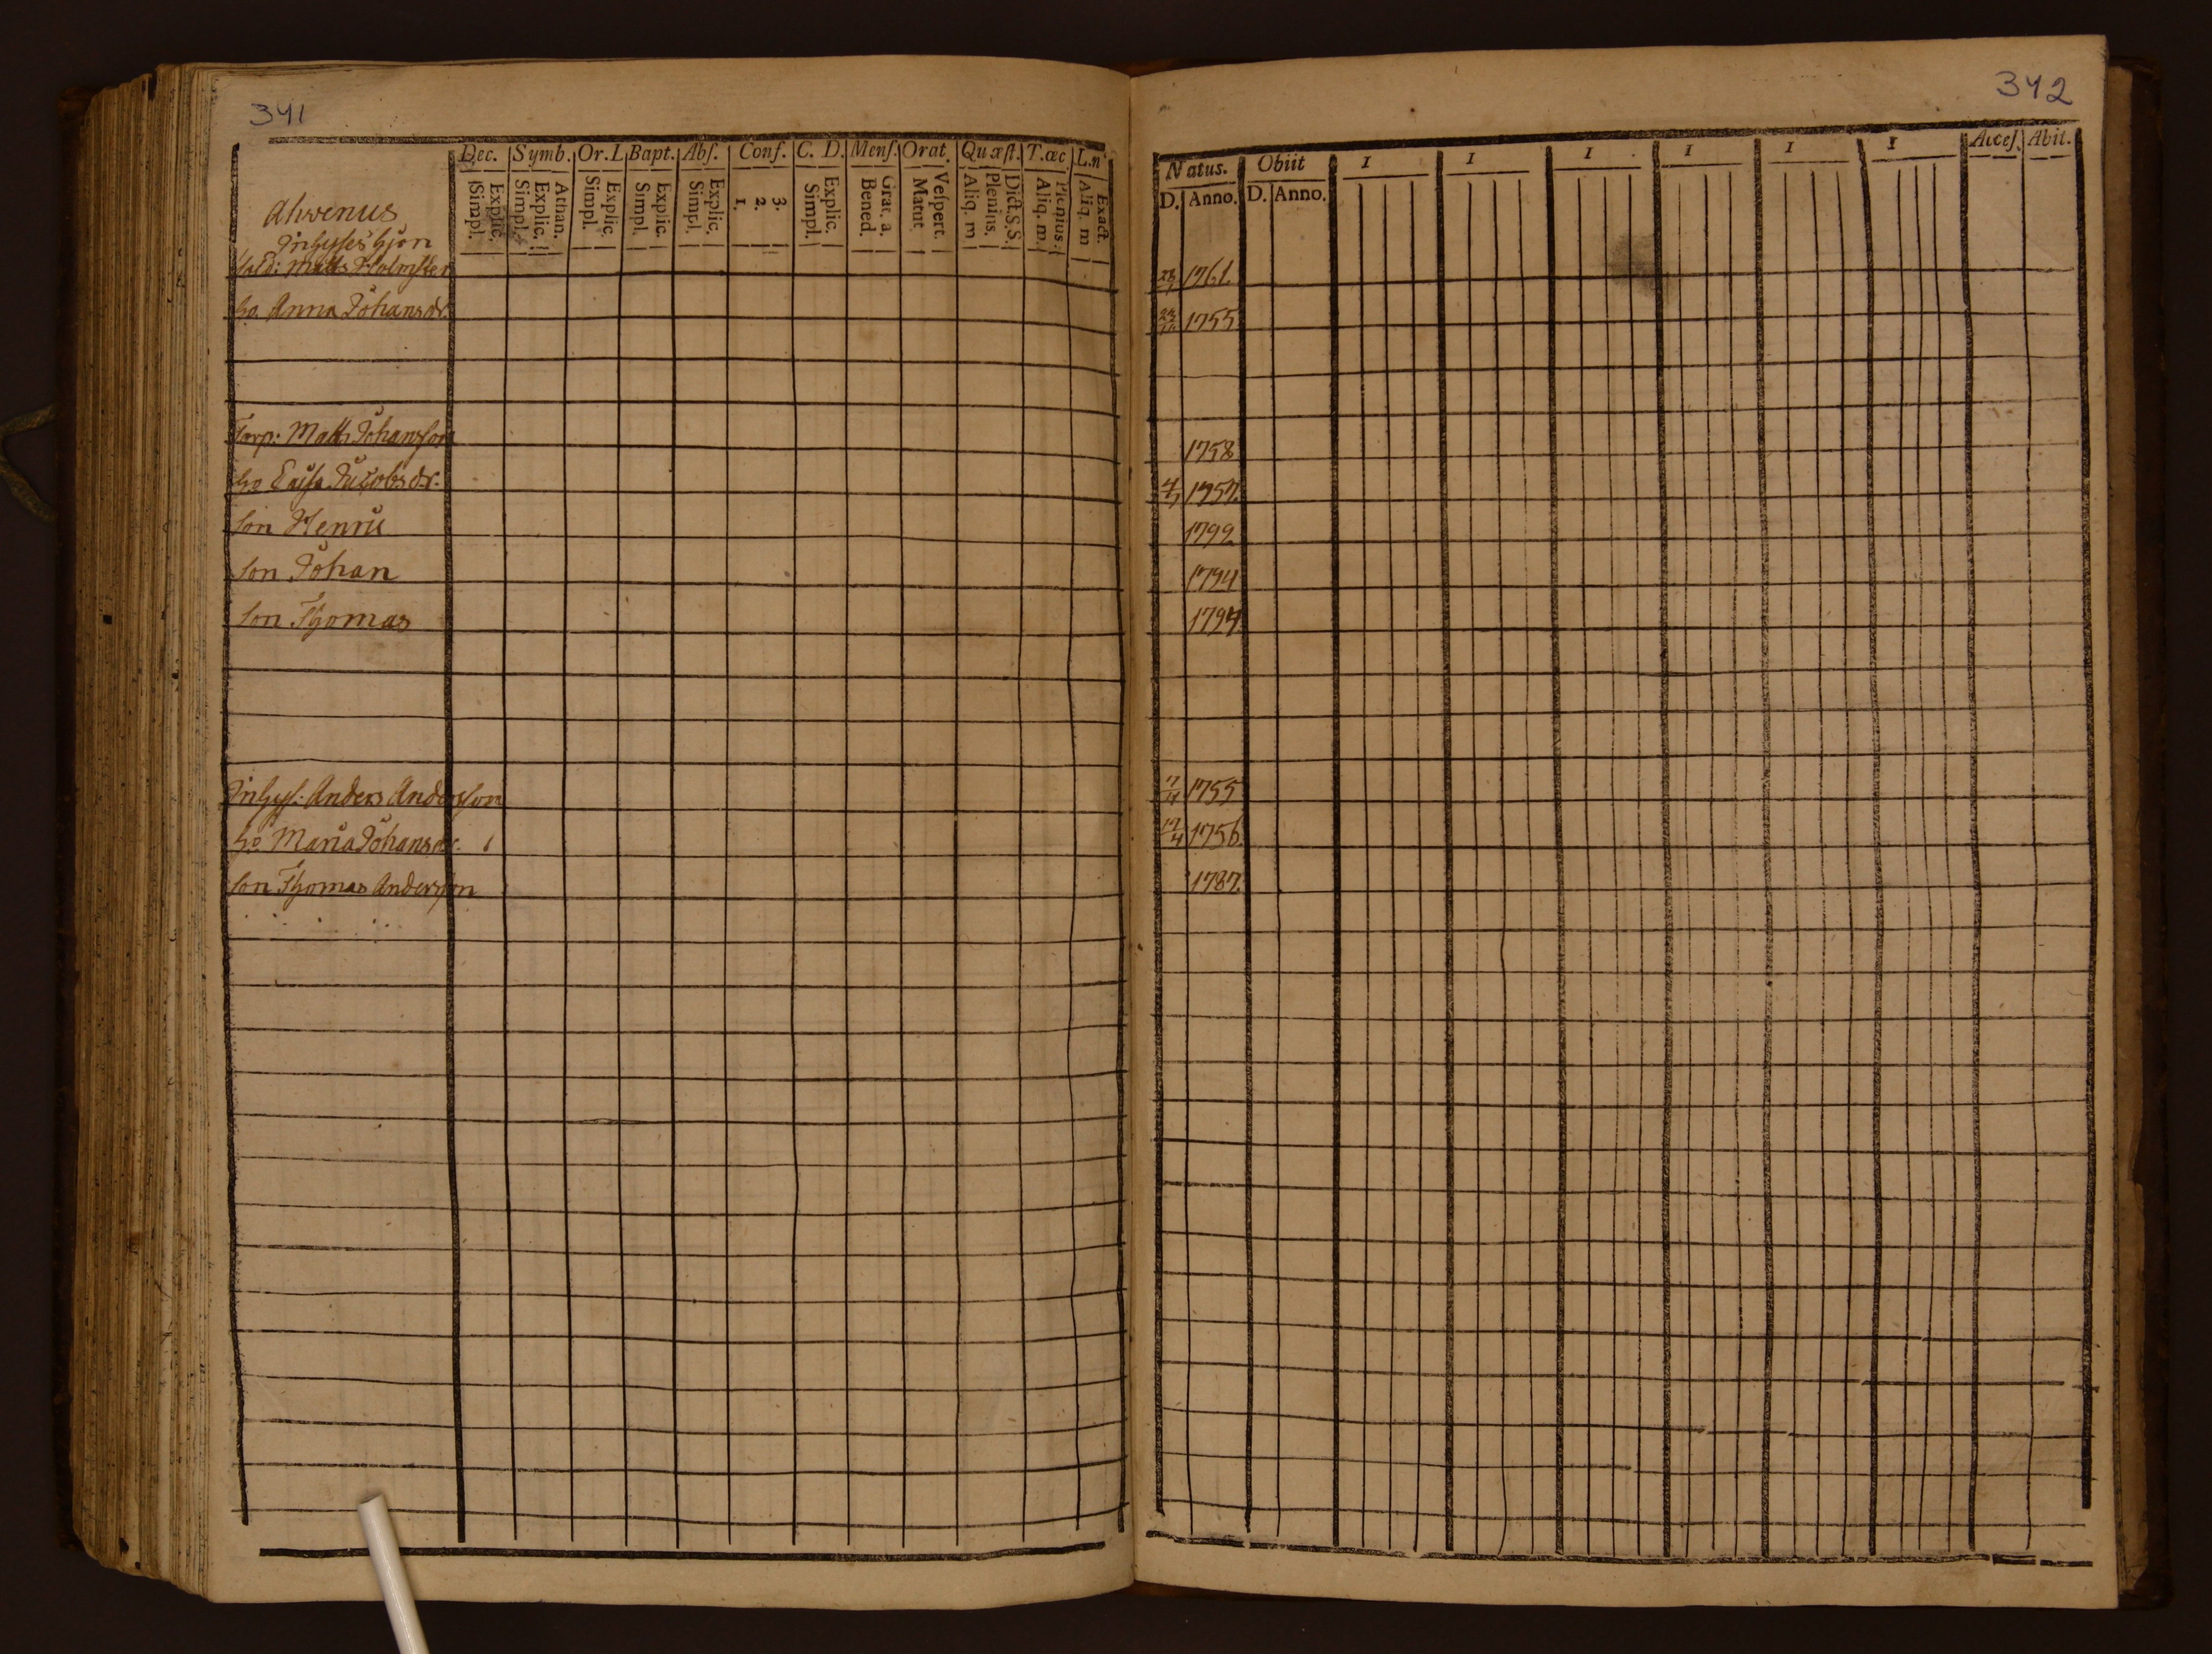 341
Dec. Symb. Or. L. Bapt. Abſ. Conf. C. D. Menſ. Orat. Quæſt. T. œc. L. n
Simpl. Explic. Simpl. Explic. Athan. Simpl. Explic. Simpl. Explic. Simpl. Explic. 1. 2. 3. Simpl. Explic. Bened. Grat. a. Matut. Veſpert. Aliq. m Plenius. Dict. S. S. Aliq. m. Plenius. Aliq. m Exact.
Ahvenus
Inhyſes hjon
Sald: Matts Holmsten
ho. Anna Johansdr.
Torp: Matts Johansson
ho Caisa Jacobsdr.
son Henric
son Johan
son Thomas
Inhys: Anders Andersson
ho Maria Johansdr.
son Thomas Andersson
342
Natus. Obiit 1 1 1 1 1 1 Acceſ. Abit.
D. Anno. D. Anno.
1761.
1755
1758
1757.
1792
1794
1794
1755
17/4 1756.
1787.